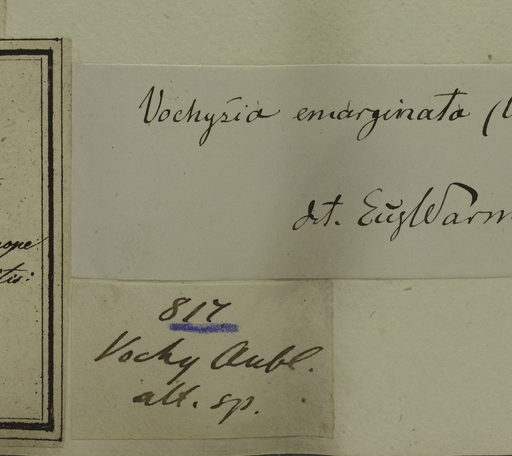 Vochysia emarginata (V
det. Eug Warm
817
Vochy Aubl.
alt. sp.